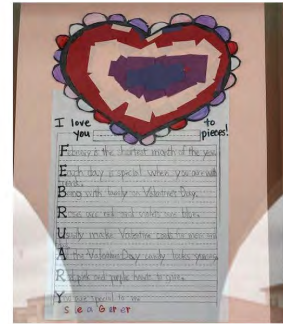 I love you to pieces!
February is the shortest month of the year.
Each day is special when you are with
Being with family on Valentine's Day.
Roses are red and violets are blue.
U make Valentine cards for
All the Valentine's Day candy looks yummy
Red, pink and purple hearts to give.
You are special to me